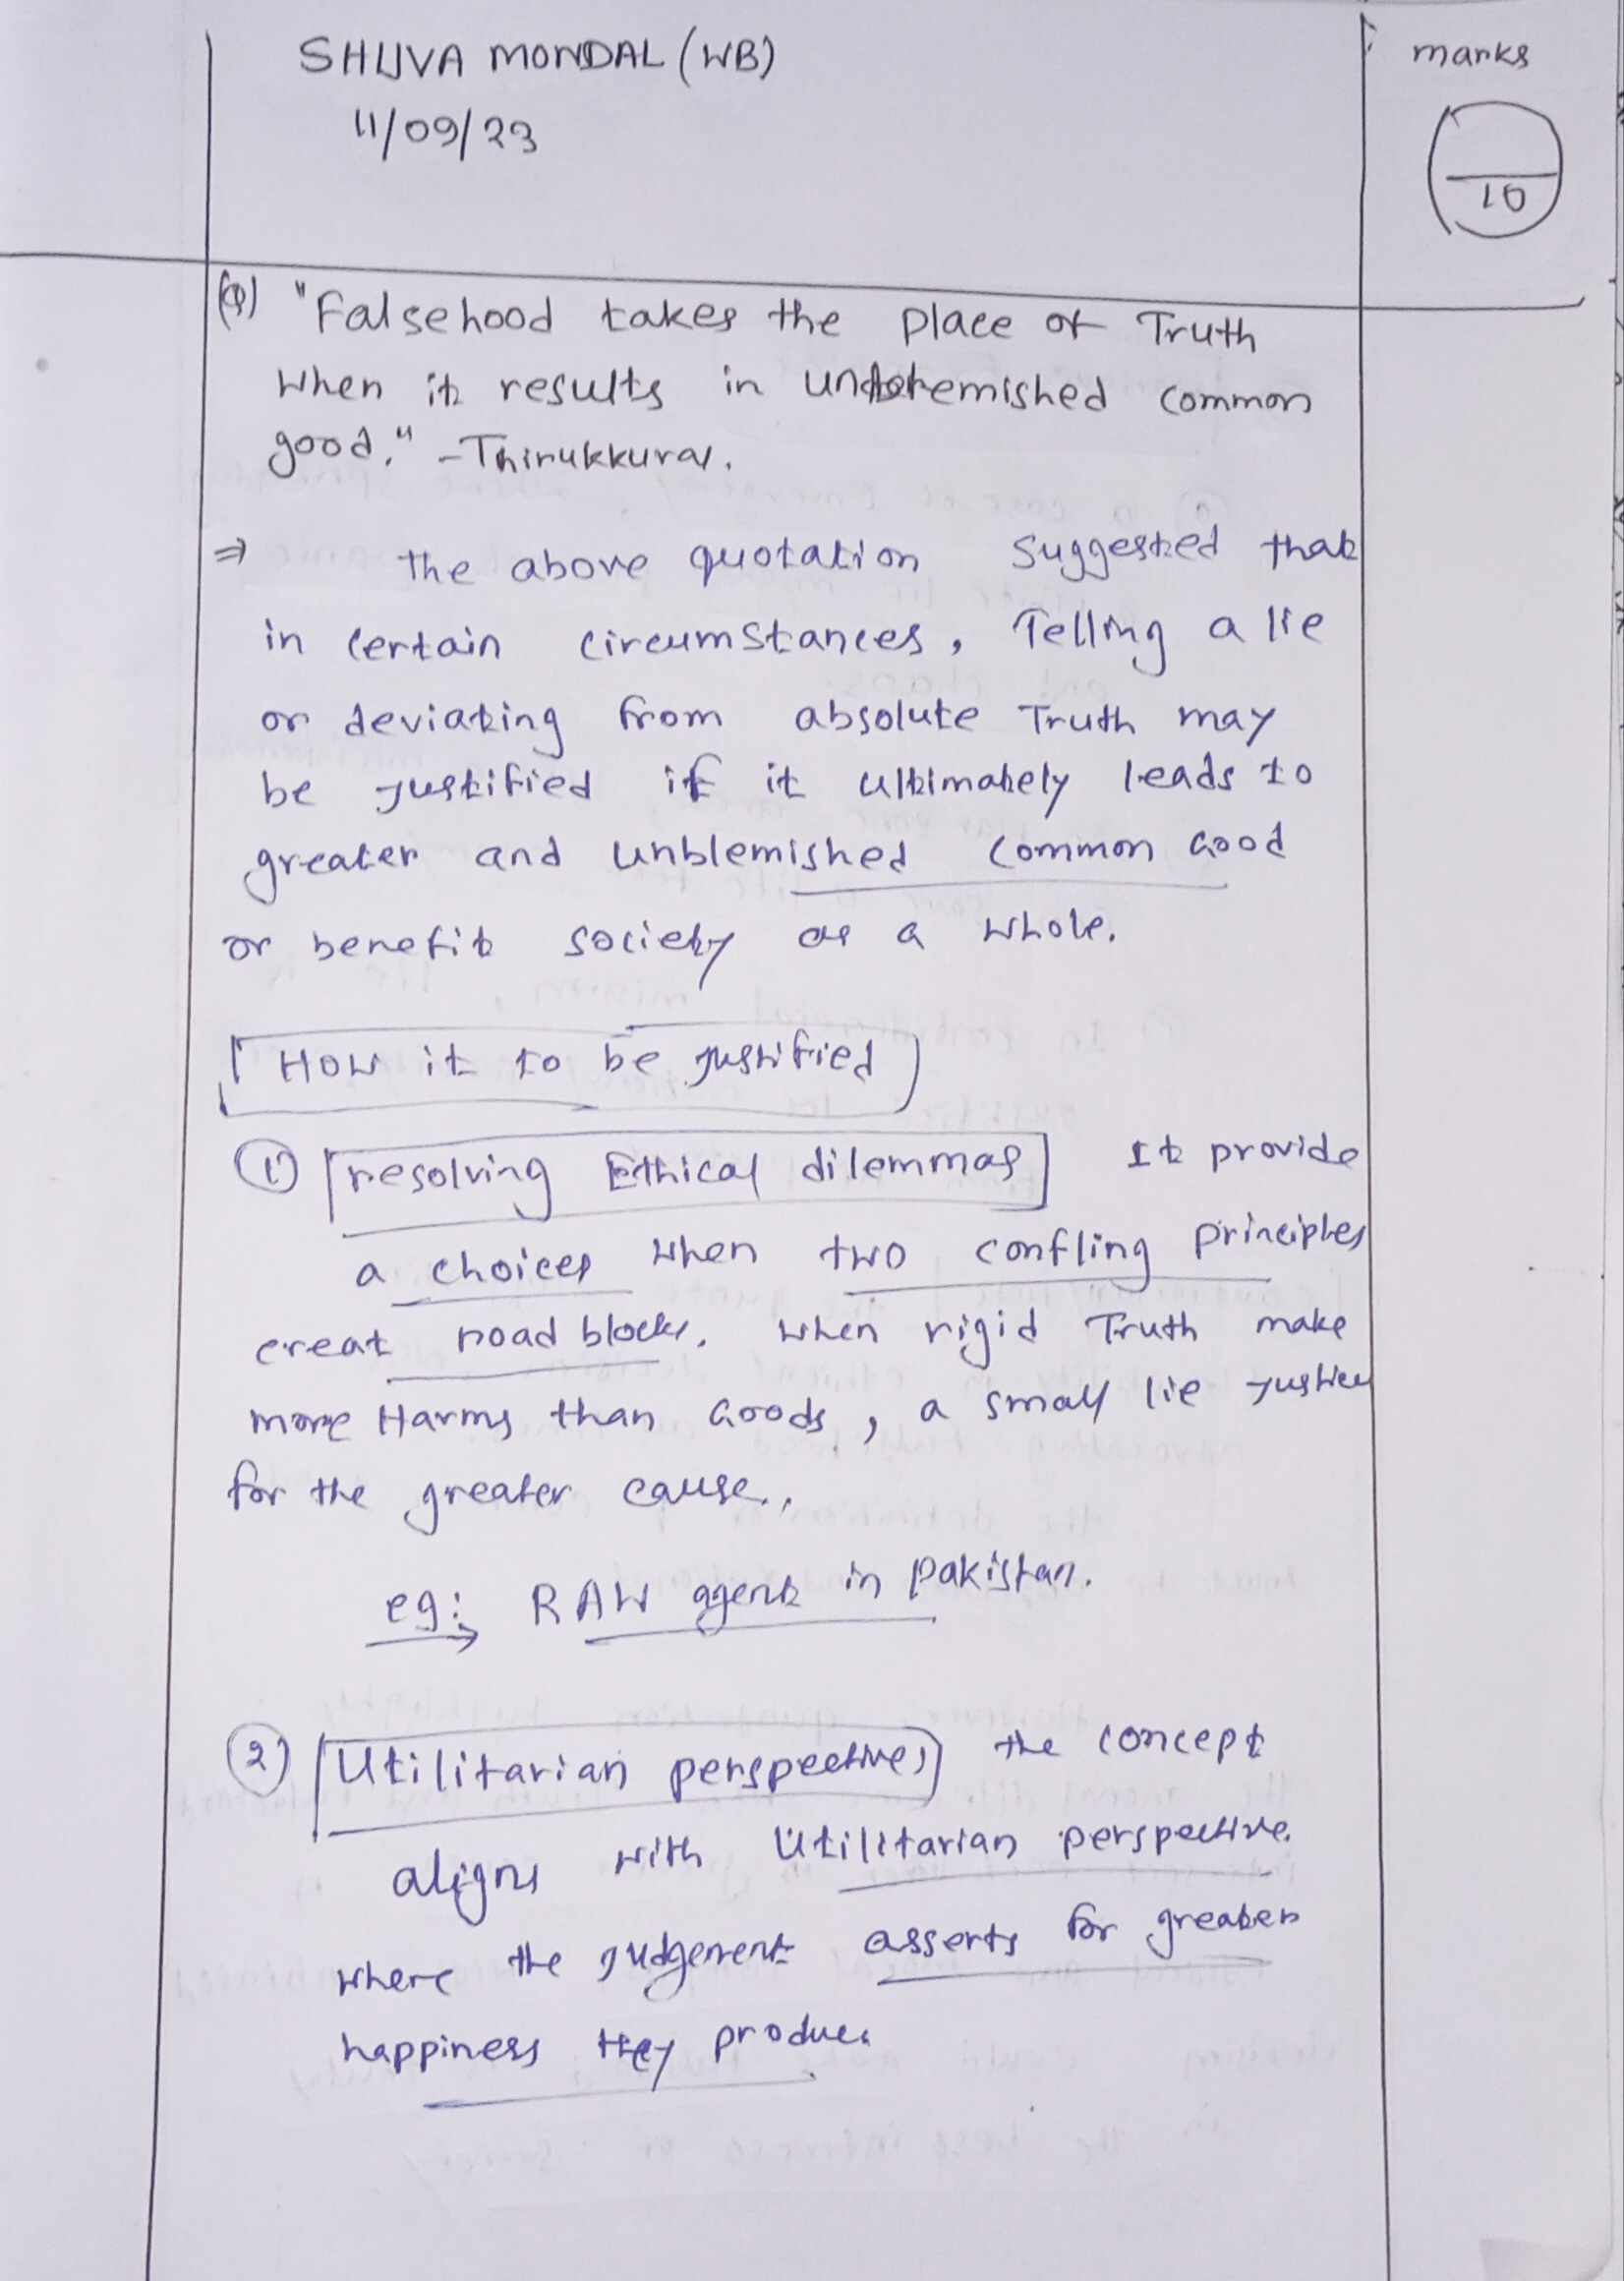 SHUVA MONDAL (WB)
11/09/23
marks
10
(Q) "Falsehood takes the place of Truth
When it results in unblemished common
good." - Thirukkural.
⇒ the above quotation suggested that
in certain circumstances, Telling a lie
or deviating from absolute Truth may
be justified if it ultimately leads to
greater and unblemished common Good
or benefit society as a whole.
How it to be justified
① resolving Ethical dilemmas It provide
a choices when two confling principles
creat road blocks. when rigid Truth make
more Harms than Goods, a small lie justice
for the greater cause..
eg: RAW agent in pakistan.
② Utilitarian perspectives the concept
aligns with Utilitarian perspective.
where the judgement asserts for greater
happiness they produce